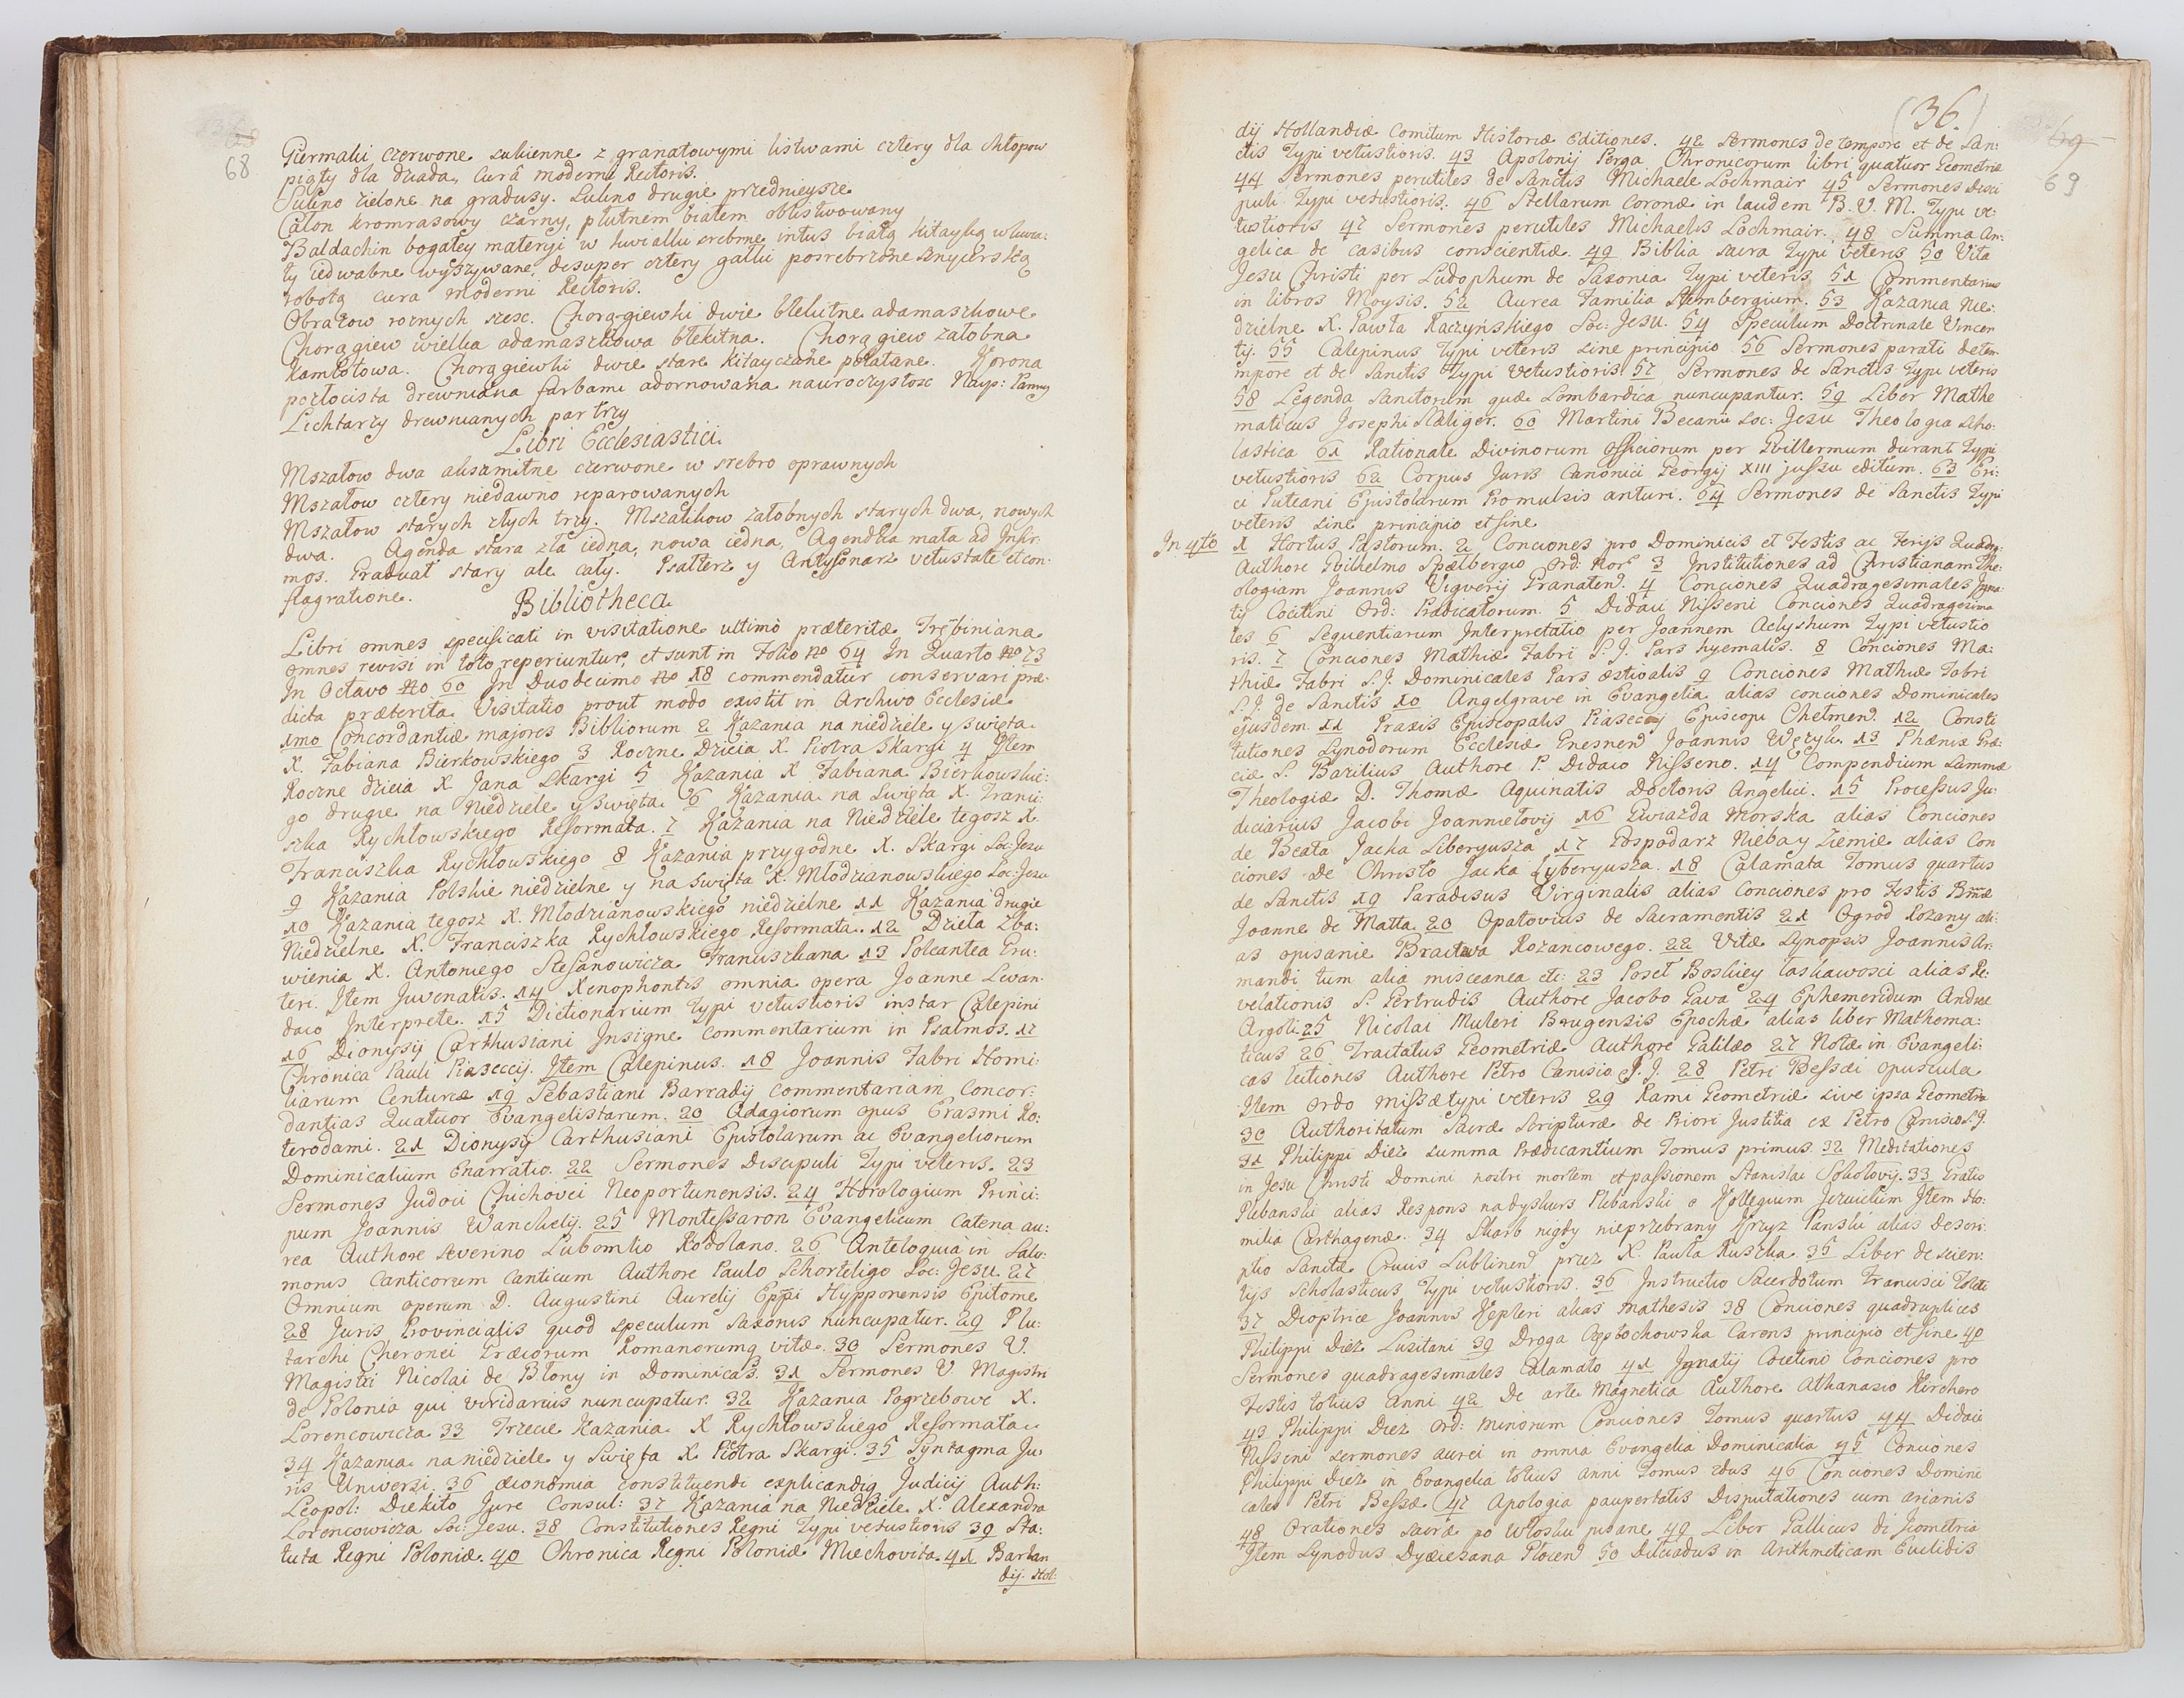 68
Giermaki czerwone sukienne z granatowymi listwami cztery dla chłopow
piąty dla dziada, curâ moderni Rectoris.
Sukno zielone na gradusy. Sukno drugie przednieysze
Całon kromrasowy czarny, płutnem białem oblistwowany
Baldachin bogatey materyi w kwiatki srebrne intus białą kitayką w kwia:
ty iedwabne wyszywane, desuper cztery gałki posrebrzone snycerską
robotą cura moderni Rectoris.
Obrazow roznych szesc. Chorągiewki dwie błekitne adamaszkowe
Chorągiew wielka adamaszkowa błekitna. Chorągiew załobna
kamlotowa. Chorągiewki dwie stare kitayczane połatane. Korona
pozłocista drewniana farbami adornowana na uroczystosc Nayś: Panny
Lichtarzy drewnianych par trzy
Libri Ecclesiastici.
Mszałow dwa aksamitne czerwone w srebro oprawnych
Mszałow cztery niedawno reparowanych
Mszałow starych złych trzy. Mszalikow załobnych starych dwa, nowych
dwa. Agenda stara zła iedna, nowa iedna, Agendka mała ad Infir:
mos. Graduał stary ale cały. Psałterz y Antyfonarz vetustate et con:
flagratione.
Bibliotheca
Libri omnes specificati in visitatione ultimò præteritæ Trębiniana
omnes revisi in toto reperiuntur, et sunt in Folio No 64 In Quarto No 73
In Octavo No 60 In Duodecimo No 18 commendatur conservari præ:
dicta præterita Visitatio prout modo existit in Archivo Ecclesiæ
1mo Concordantiæ majores Bibliorum 2 Kazania na niedziele y swięta
X. Fabiana Bierkowskiego 3 Roczne Dzieia X. Piotra Skargi 4 Item
Roczne dzieia X Jana Skargi 5 Kazania X Fabiana Bierkowskie:
go drugie na Niedziele y Swięta. 6 Kazania na Swięta X. Franci:
szka Rychłowskiego Reformata. 7 Kazania na Niedziele tegosz X
Franciszka Rychłowskiego 8 Kazania przygodne X. Skargi Soc: Jesu
9 Kazania Polskie niedzielne y na swięta X. Młodzianowskiego Soc: Jesu
10 Kazania tegosz X. Młodzianowskiego niedzielne 11 Kazania drugie
Niedzielne X. Franciszka Rychłowskiego Reformata. 12 Dzieła Zba:
wienia X. Antoniego Stefanowicza Franciszkana 13 Poleantea Gru:
teri. Item Juvenalis. 14 Xenophontis omnia opera Joanne Levan:
daio Interprete. 15 Dictionarium Typi vetustioris instar Calepini
16 Dionysij Carthusiani Insigne Commentarium in Psalmos. 17
Chronica Pauli Piaseccij. Item Calepinus. 18 Joannis Fabri Homi:
liarum Centuriæ 19 Sebastiani Barradij commentariam concor:
dantias Quatuor Evangelistarum. 20 Adagiorum opus Erasmi Ro:
terodami. 21 Dionysij Carthusiani Epistolarum ac Evangeliorum
Dominicalium Enarratio. 22 Sermones Discipuli Typi veteris. 23
Sermones Judoci Chichovei Neoportunensis. 24 Horologium Princi:
pum Joannis Wanckelij. 25 Montessaron Evangelicum Catena au:
rea Authore Severino Lubomlio Rodolano. 26 Anteloquia in Salo:
monis Canticorum Canticum Authore Paulo Schorteligo Soc: Jesu. 27
Omnium operum D. Augustini Aurelij Eppi Hypponensis Epitome
28 Juris Provincialis quod speculum Saxonis nuncupatur. 29 Plu:
tarchi Cheronei Græcorum Romanorumq vitæ. 30 Sermones V.
Magistri Nicolai de Błony in Dominicas. 31 Sermones V. Magistri
de Polonia qui viridarius nuncupatur. 32 Kazania Pogrzebowe X.
Lorencowicza 33 Trzecie Kazania X Rychłowskiego Reformata
34 Kazania na niedziele y Swięta X. Piotra Skargi. 35 Syntagma Ju:
ris Universi. 36 œconomia constituendi explicandiq Judicij Auth:
Leopol: Diekito Jure Consul: 37 Kazania na Niedziele X. Alexandra
Lorencowicza Soc: Jesu. 38 Constitutiones Regni Typi vetustioris 39 Sta:
tuta Regni Poloniæ. 40 Chronica Regni Poloniæ Miechovita. 41 Barlan
dij. Hol:
(36.)
69
69
dij Hollandiæ Comitum Historiæ Editiones. 42 Sermones de tempore et de San:
ctis Typi vetustioris. 43 Apolonij Perga Chronicorum libri quatuor Geometriæ
44 Sermones perutiles de Sanctis Michaele Lochmair 45 Sermones Disci
puli Typi vetustioris. 46 Stellarum Coronæ in laudem B. V. M. Typi ve:
tustioris 47 Sermones perutiles Michaelis Lochmair. 48 Summa An:
gelica de casibus conscientiæ. 49 Biblia sacra Typi veteris 50 Vita
Jesu Christi per Ludophum de Saxonia Typi veteris 51 Commentarius
in libros Moysis. 52 Aurea Familia Stembergium. 53 Kazania Nie:
dzielne X. Pawła Kaczyńskiego Soc: Jesu. 54 Speculum Doctrinale Vincen
tij. 55 Calepinus Typi veteris sine principio 56 Sermones parati de tem
mpore et de Sanctis Typi vetustioris. 57 Sermones de Sanctis Typi veteris
58 Legenda Sanctorum quæ Lombardica nuncupantur. 59 Liber Mathe
maticus Josephi Scaliger. 60 Martini Becanii Soc: Jesu Theologia Scho:
lastica 61 Rationale Divinorum Officiorum per Gvillermum durant Typi
vetustioris 62 Corpus Juris Canonici Georgij XIII jussu editum. 63 Eri:
ci Puteani Epistolarum Promulsis anturi. 64 Sermones de Sanctis Typi
veteris sine principio et fine
In 4to 1 Hortus Pastorum. 2 Conciones pro Dominicis et Festis ac Ferijs Quadra:
Authore Gvilhelmo Spælbergio Ord: Nor 3 Institutiones ad Christianam The:
ologiam Joannis Vigverij Granaten. 4 Conciones Quadragesimales Igna:
tij Cocitini Ord: Prædicatorum. 5 Didaci Nisseni Conciones Quadragesima
les 6 Sequentiarum Interpretatio per Joannem Aclyshum Typi vetustio
ris. 7 Conciones Mathiæ Fabri S. J. Pars hyemalis. 8 Conciones Ma:
thiæ Fabri S. J. Dominicales Pars æstivalis 9 Conciones Mathiæ Fabri
S. J. de Sanctis 10 Angelgrave in Evangelia alias conciones Dominicales
ejusdem 11 Praxis Episcopalis Piaseccij Episcopi Chelmen. 12 Consti
tutiones Synodorum Ecclesiæ Gnesnen Joannis Wężyk. 13 Phænix Græ:
ciæ S. Bazilius Authore P. Didaco Nisseno. 14 Compendium Summæ
Theologiæ D. Thomæ Aquinatis Doctoris Angelici. 15 Processus Ju:
diciarius Jacobi Joannielovij 16 Gwiazda Morska alias Conciones
de Beata Jacka Liberyusza 17 Gospodarz Nieba y Ziemie alias Con
ciones De Christo Jacka Lyberyusza. 18 Calamata Tomus quartus
de Sanctis 19 Paradisus Virginalis alias Conciones pro Festis Bmæ
Joanne de Matta 20 Opatovius de Sacramentis 21 Ogrod Rozany ali:
as opisanie Bractwa Rozancowego. 22 Vitæ Synopsis Joannis Ar:
mandi tum alia misceanea etc: 23 Poseł Boskiey łaskawosci alias Re:
velationis S. Gertrudis Authore Jacobo Gava 24 Ephemeridum Andreæ
Argoli. 25 Nicolai Muleri Brugensis Epochæ alias liber Mathema:
ticus 26 Tractatus Geometriæ Authore Galilæo 27 Notæ in Evangeli:
cas lectiones Authore Petro Canisio S. J. 28 Petri Bessæi opuscula
Item ordo missæ typi veteris 29 Rami Geometriæ sive ipsa Geometria
30 Authoritatum Sacræ Scripturæ de Priori Justitia ex Petro Canisio S. J.
31 Philippi Diez summa Prædicantium Tomus primus. 32 Meditationes
in Jesu Christi Domini nostri mortem et passionem Stanislai Sokolovij. 33 Gratis
Plebanski alias Respons na dyskurs Plebanski o Kollegium Jezuickim Item Ho:
milia Carthagenæ. 34 Skarb nigdy nieprzebrany Krzyz Panski alias descri:
ptio Sanctæ Crucis Lublinen przez X. Pawła Ruszka 35 Liber de scien:
tijs Scholasticus Typi vetustioris. 36 Instructio Sacerdotum Francisci Toleti
37 Dioptrice Joannis Kepleri alias mathesis 38 Conciones quadruplices
Philippi Diez Luzitani 39 Droga Częstochowska Carens principio et fine 40
Sermones quadragesimales Calamato 41 Ignatij Cocitini Conciones pro
Festis totius Anni 42 De arte Magnetica Authore Athanasio Kirchero
43 Philippi Diez Ord: Minorum Conciones Tomus quartus 44 Didaci
Nisseni sermones aurei in omnia Evangelia Dominicalia 45 Conciones
Philippi Diez in Evangelia totius anni Tomus 2dus 46 Conciones Domini
cales Petri Bessæ 47 Apologia paupertatis Disputationes cum arianis
48 Orationes sacræ po Włosku pisane 49 Liber Gallicus di Jeometria
Item Synodus Dyæcesana Plocen 50 Dilciadus in Arithmeticam Euclidis